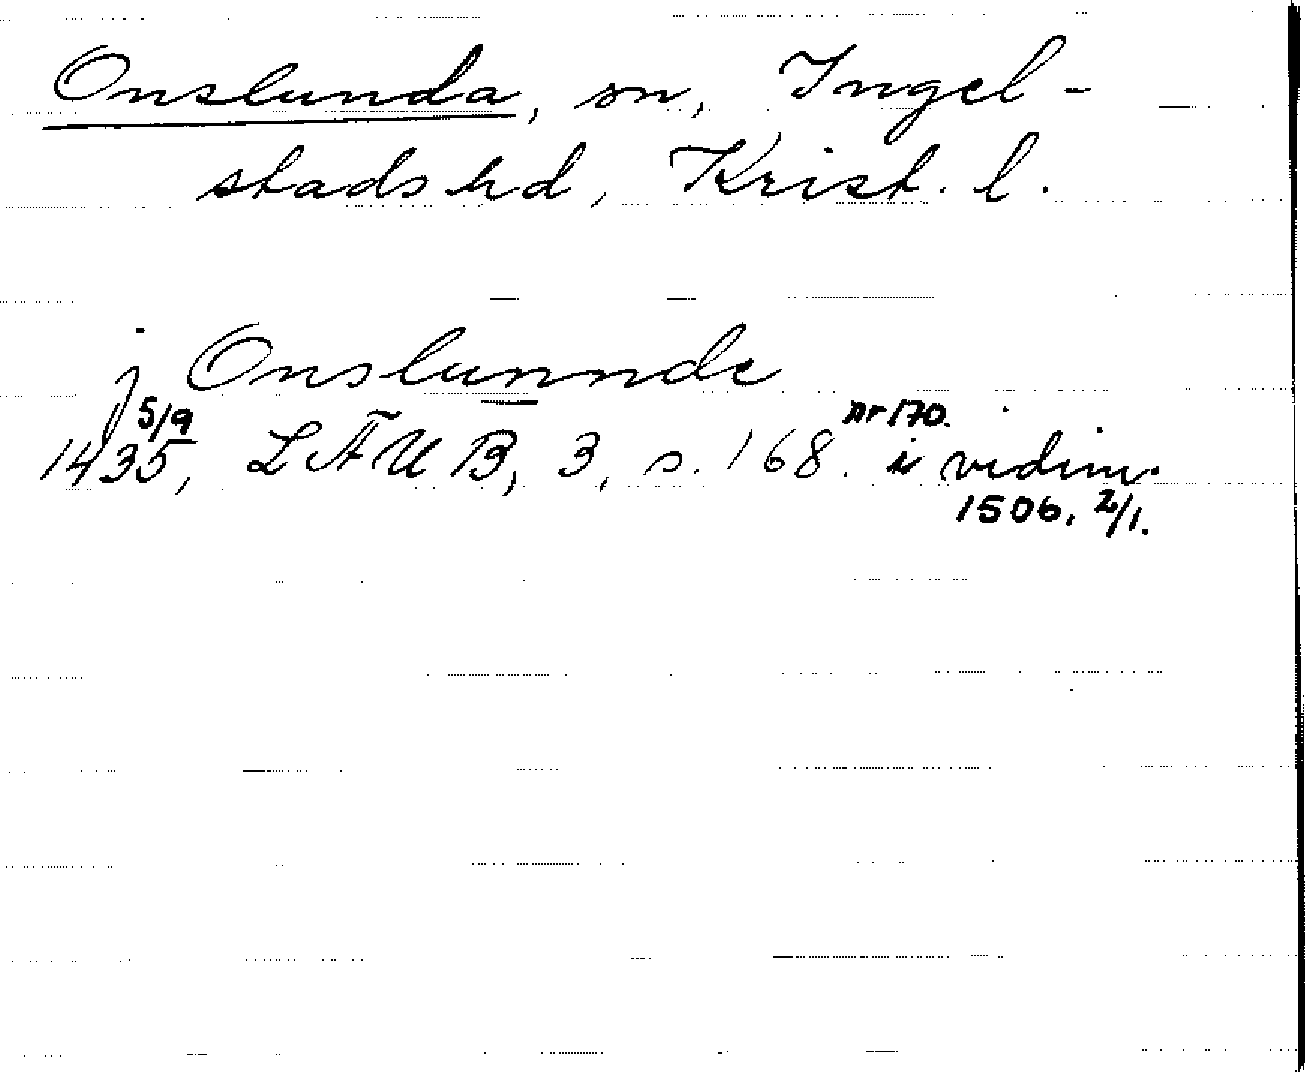 Onslunda, sn, Ingel-
stads hd, Krist. l.
j Onslunnde
1435, 5/9 LÄUB, 3, s. 168. nr 170. i vidim.
1506, 2/1.